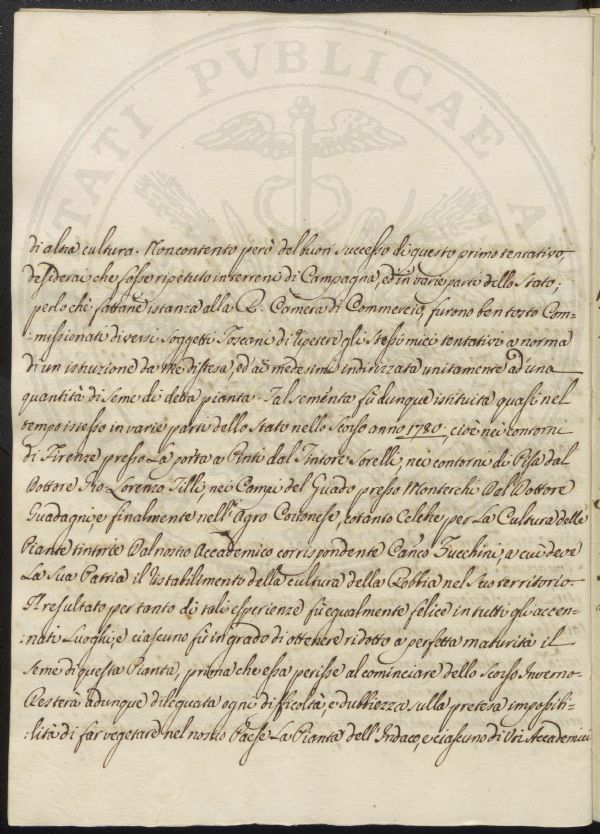 TATI PVBLICAE A
di altra cultura. Noncontento però del buon successo di questo primo tentativo,
desiderai che fosse ripetuto in terreni di Campagna, ed in varie parti dello Stato;
perlochè fattane istanza alla R. Camera di Commercio, furono ben tosto Com=
:missionati diversi Soggetti Toscani di ripetere gli stessi miei tentativi a norma
di un istruzione da me distesa, ed a' medesimi indirizzata unitamente ad'una
quantità di Seme di detta pianta. Tal sementa fù dunque istituita quasi nel
tempo istesso in varie parti dello Stato nello Scorso anno 1780. cioè nei contorni
di Firenze presso La porta a Pinti dal Tintore Sorelli, nei contorni di Pisa dal
Dottore Gio. Lorenzo Tilli, nei Campi del Guado presso Monterchi Dal Dottore
Guadagni, e finalmente nell' Agro Cortonese, cotanto Celebre per La Cultura delle
Piante tintorie Dal nostro Accademico corrispondente Can.co Zucchini, a cui deve
La Sua Patria il ristabilimento della cultura della Robbia nel Suo territorio.
Il resultato per tanto di tali esperienze fù egualmente felice in tutti gli accen=
:nati Luoghi; e ciascuno fù in grado di ottenere ridotto a perfetta maturità il
Seme di questa Pianta, prima che essa perisse al cominciare dello Scorso Inverno.
Resterà adunque dileguata ogni difficoltà, e dubbiezza sulla pretesa impossibi=
:lità di far vegetare nel nostro Paese La Pianta dell' Indaco, e ciascuno di Voi Accademici